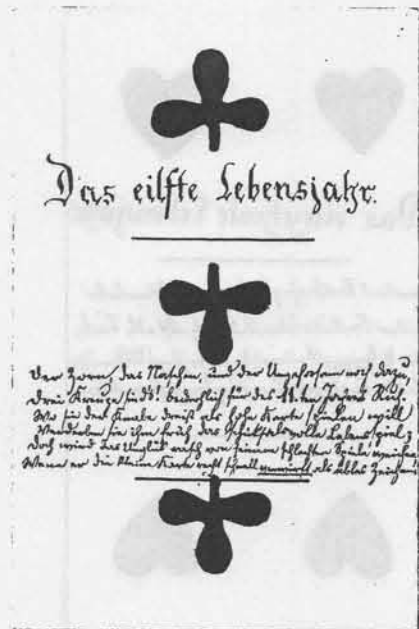 Das eilfte Lebensjahr.
Der Zorn, das Naschen, und der Ungehorsam noch dazu,
Drei Kreuze sind's! bedenklich für des 11.ten Jahres Ruh.
Wo sie der Knabe dreist als hohe Karte spielen will,
Verderben sie ihm früh das schicksalsvolle Lebensspiel;
Doch wird das Unglück rasch von seinem schlechten Spiele weichen,
Wenn er die kleine Karte recht schnell wegwirft als übles Zeichen.